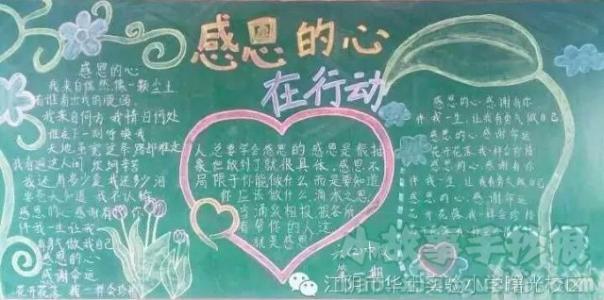 感恩的心
在行动
感恩的心
我来自偶然 像一颗尘土
我来自何方 我情归何处
谁在下一刻呼唤我
天地虽宽 这条路却难走
我看遍这人间 坎坷辛苦
我还有多少爱 我还多少泪
要苍天知道 我不认输
感恩的心 感谢有你
伴我一生 让我
有勇气做我自己
感恩的心
感谢命运
花开花落 我一样会珍惜
人总要学会感恩的 感恩是很抽
象也做到了就很具体 感恩不
局限于你能做什么 而是要知道
你应该做什么 滴水之恩
当涌泉相报
有帮你的人
就是感恩
感恩的心 感谢有你
伴我一生 让我有勇气做自己
感恩的心 感谢命运
花开花落 我一样会珍惜
感恩的心 感谢有你
伴我一生 让我有勇气做自己
感恩的心 感谢命运
花开花落 我一样会珍惜
小故事手抄报
江阴市华士实验小学曙光校区